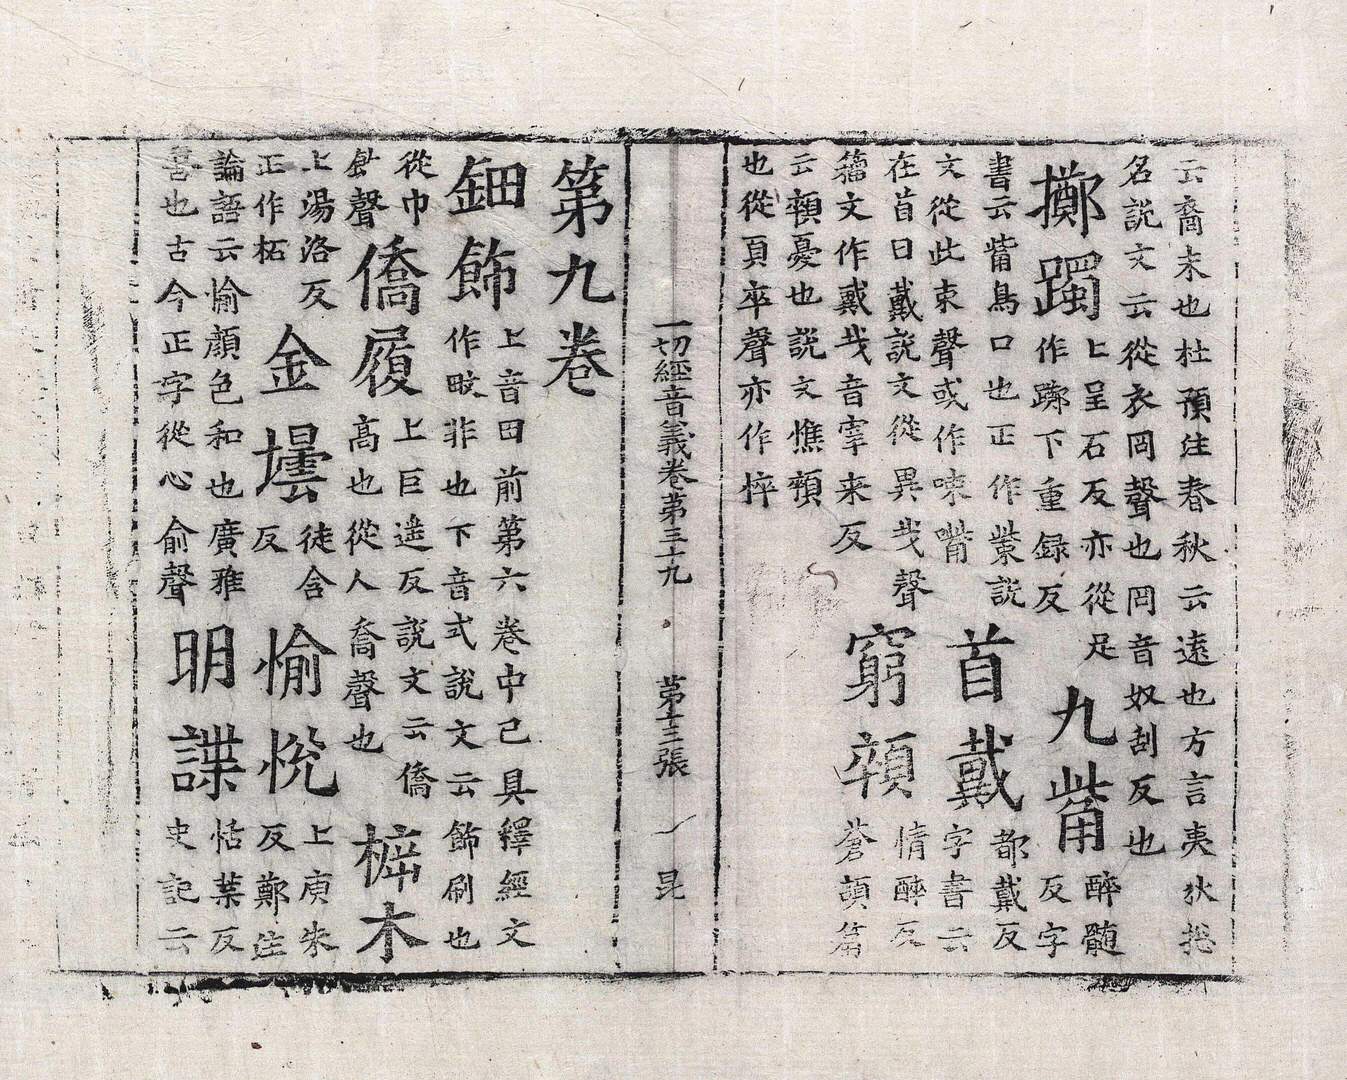 云裔末也杜預注春秋云遠也方言夷狄揔
名說文云從衣冏聲也冏音奴刮反也
擲躅
上呈石反亦從足
作躑下重録反
九觜
醉髓
反字
書云觜鳥口也正作㭰說
文從此束聲或作㖢嘴
首戴
都戴反
字書云
在首曰戴說文從異𢦏聲
籀文作戴𢦏音宰来反
窮顇
情醉反
蒼頡篇
云顇憂也說文憔顇
也從頁卒聲亦作悴
一切經音義卷第三十九 第十三張 昆
第九卷
鈿飾
上音田前第六卷中已具釋經文
作畋非也下音式說文云飾刷也
從巾
飤聲
僑履
上巨遥反說文云僑
高也從人喬聲也
㯉木
上湯洛反
正作柘
金壜
徒含
反
愉悅
上庾朱
反鄭注
論語云愉顏色和也廣雅
喜也古今正字從心俞聲
明諜
恬葉反
史記云